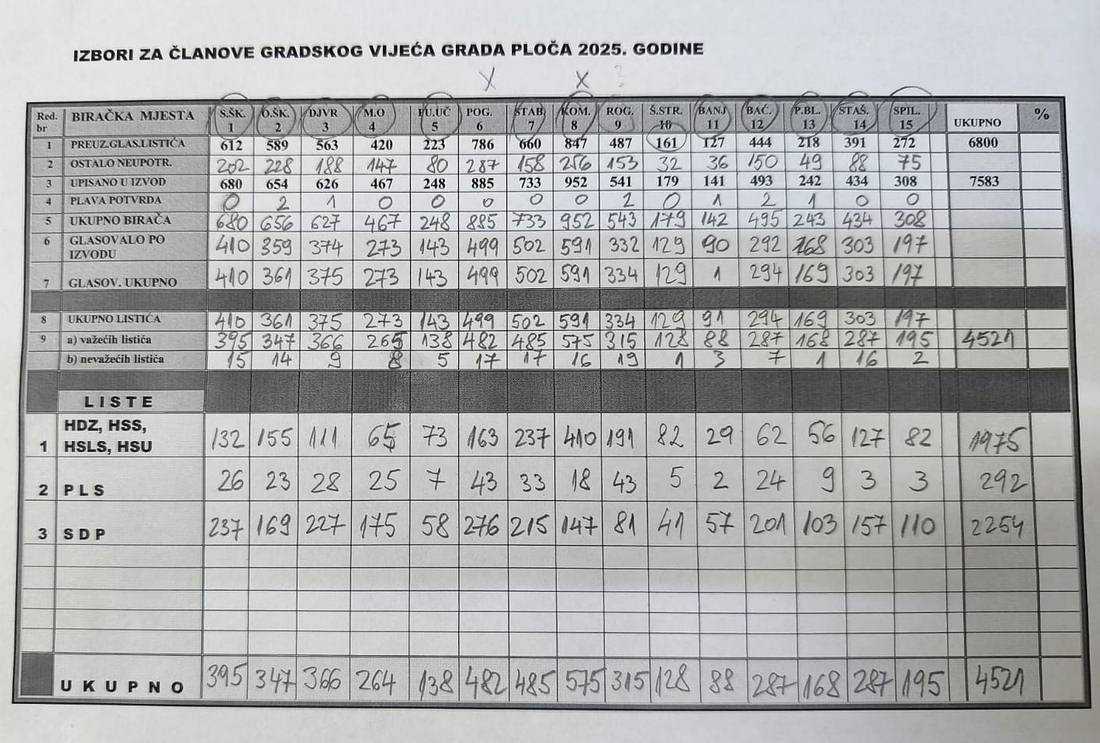 IZBORI ZA ČLANOVE GRADSKOG VIJEĆA GRADA PLOČA 2025. GODINE
X X ?
Red. br BIRAČKA MJESTA S.ŠK. 1 O.ŠK. 2 DJVR 3 M.O 4 PU.UČ 5 POG. 6 STAB. 7 KOM. 8 ROG. 9 Š.STR. 10 BANJ 11 BAĆ. 12 P.BL. 13 STAŠ. 14 SPIL. 15 UKUPNO %
1 PREUZ.GLAS.LISTIĆA 612 589 563 420 223 786 660 847 487 161 127 444 218 391 272 6800
2 OSTALO NEUPOTR. 202 228 188 147 80 287 158 256 153 32 36 150 49 88 75
3 UPISANO U IZVOD 680 654 626 467 248 885 733 952 541 179 141 493 242 434 308 7583
4 PLAVA POTVRDA 0 2 1 0 0 0 0 0 2 0 1 2 1 0 0
5 UKUPNO BIRAČA 680 656 627 467 248 885 733 952 543 179 142 495 243 434 308
6 GLASOVALO PO IZVODU 410 359 374 273 143 499 502 591 332 129 90 292 168 303 197
7 GLASOV. UKUPNO 410 361 375 273 143 499 502 591 334 129 1 294 169 303 197
8 UKUPNO LISTIĆA 410 361 375 273 143 499 502 591 334 129 91 294 169 303 197
9 a) važećih listića 395 347 366 265 138 482 485 575 315 128 88 287 168 287 195 4521
b) nevažećih listića 15 14 9 8 5 17 17 16 19 1 3 7 1 16 2
LISTE
1 HDZ, HSS, HSLS, HSU 132 155 111 65 73 163 237 410 191 82 29 62 56 127 82 1975
2 PLS 26 23 28 25 7 43 33 18 43 5 2 24 9 3 3 292
3 SDP 237 169 227 175 58 276 215 147 81 41 57 201 103 157 110 2254
UKUPNO 395 347 366 264 138 482 485 575 315 128 88 287 168 287 195 4521